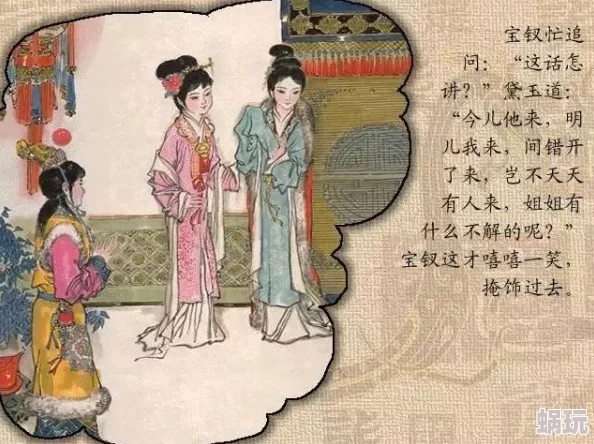 宝钗忙追
问：“这话怎
讲？”黛玉道：
“今儿他来，明
儿我来，间错开
了来，岂不天天
有人来，姐姐有
什么不解的呢？”
宝钗这才嘻嘻一笑，
掩饰过去。
蜗玩